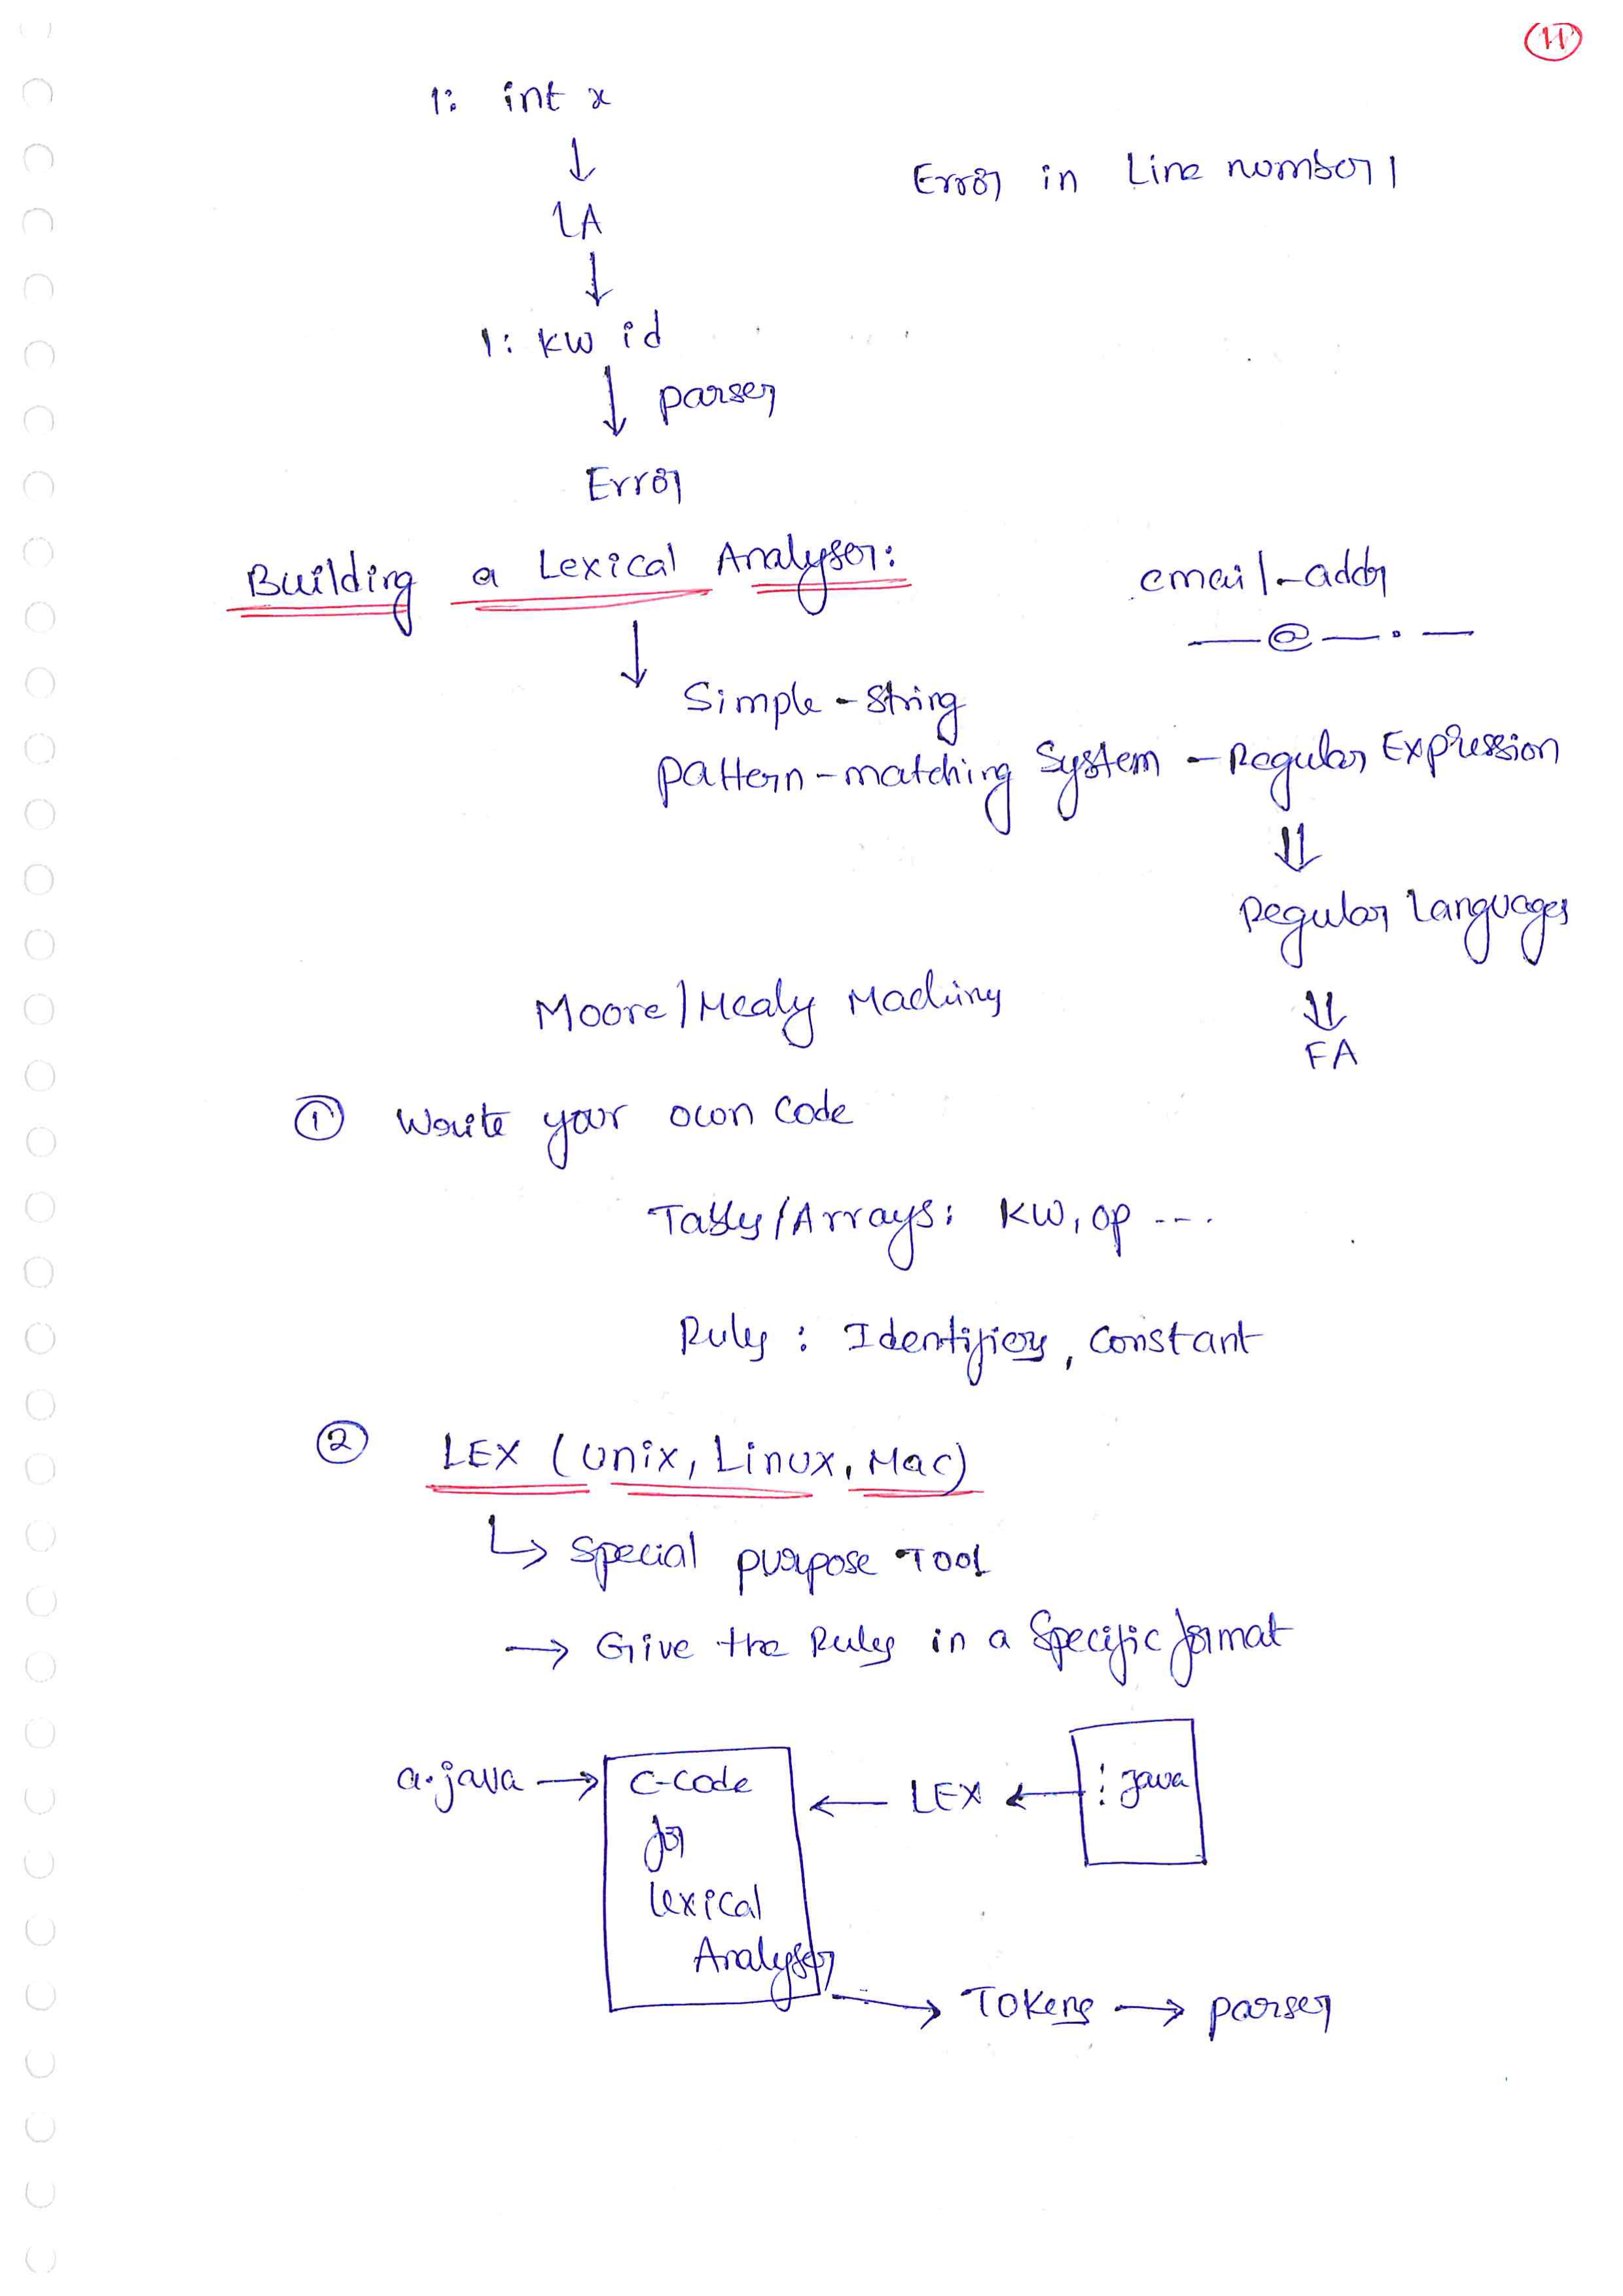 11
1: int x
↓
LA
Error in Line number 1
↓
1: KW id
↓ parser
Error
Building a Lexical Analyser:
email-addr
—@—.—
↓
Simple-string
pattern-matching System - Regular Expression
⇓
Regular Languages
Moore/Mealy Machines
⇓
FA
① Write your own Code
Tables/Arrays: KW, op ---.
Rules: Identifiers, Constant
② LEX (Unix, Linux, Mac)
↳ Special purpose TOOL
→ Give the Rules in a Specific format
a.java → C-Code ← LEX ← ⋮ Java
for
Lexical
Analyser
→ TOKENS → parser